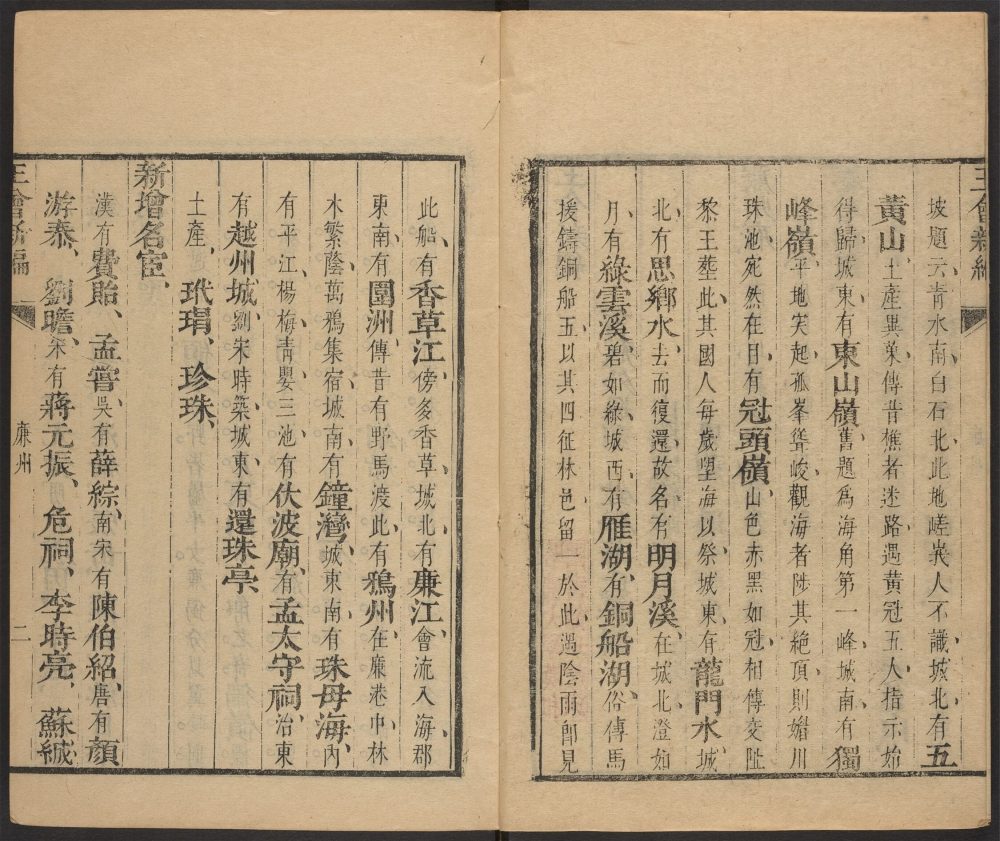 王會新編
坡題云青水南白石北此地嵯峩人不識城北有五
黃山土產異菓傳昔樵者迷路遇黃冠五人指示始
得歸城東有東山嶺舊題爲海角第一峰城南有獨
峰嶺平地突起孤峯聳峻觀海者陟其絕頂則媚川
珠池宛然在目有冠頭嶺山色赤黑如冠相傳交阯
黎王塟此其國人每歲望海以祭城東有龍門水城
北有思鄉水去而復還故名有明月溪在城北澄如
月有綠雲溪碧如綠城西有雁湖有銅船湖俗傳馬
援鑄銅船五以其四征林邑留一於此遇陰雨卽見
此船有香草江傍多香草城北有廉江會流入海郡
東南有圍洲傳昔有野馬渡此有鴉州在廉港中林
木繁蔭萬鴉集宿城南有鐘灣城東南有珠母海內
有平江楊梅青嬰三池有伏波廟有孟太守祠治東
有越州城劉宋時築城東有還珠亭
土產玳瑁珍珠
新增名宦
漢有費貽孟嘗吳有薛綜南宋有陳伯紹唐有顏
游秦劉瞻宋有蔣元振危祠李時亮蘇緘
王會新編
廉州
二